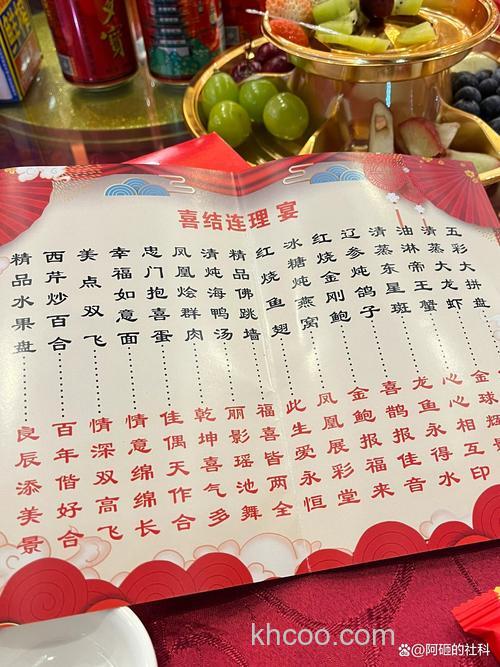 喜结连理宴
五彩大拼盘
清蒸大龙虾 金球辉
油淋帝王蟹 心心相互印
清蒸东星斑 龙鱼永得水
辽参炖鸽子 喜鹊报佳音
红烧金刚鲍 金鲍报福来
冰糖炖燕窝 凤凰展彩堂
红烧鱼翅 此生爱永恒
精品佛跳墙 福喜皆两全
清炖海鸭汤 丽影瑶池舞
凤凰烩群肉 乾坤喜气多
忠门抱喜蛋 佳偶天作合
幸福如意面 情意绵绵长
美点双飞 情深双高飞
西芹炒百合 百年偕好合
精品水果盘 良辰添美景
khcoo.com
@阿砸的社科